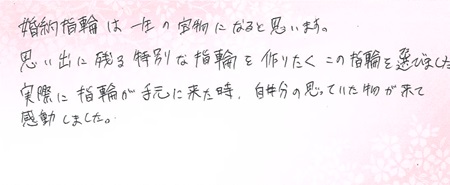 婚約指輪は一生の宝物になると思います。
思い出に残る特別な指輪を作りたくこの指輪を選びました
実際に指輪が手元に来た時、自分の思っていた物が来て
感動しました。